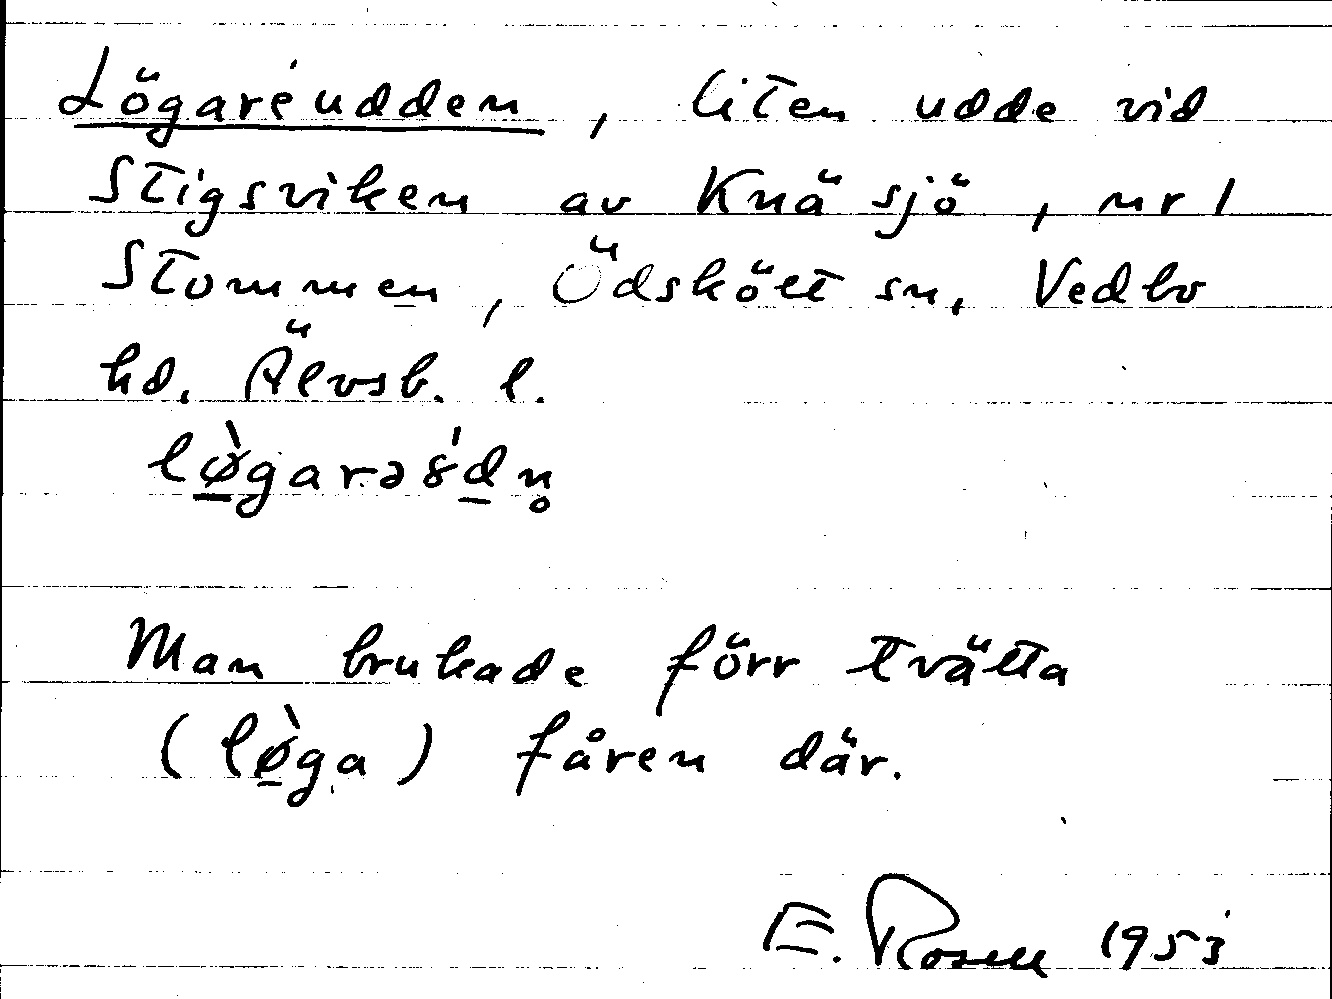 Lögare'udden, liten udde vid
Stigsviken av Knäsjö, nr 1
Stommen, Ödskölt sn, Vedbo
hd. Älvsb. l.
lø̀garə8'dn̥
Man brukade förr tvätta
(lø̀ga) fåren där.
E. Rosell 1953